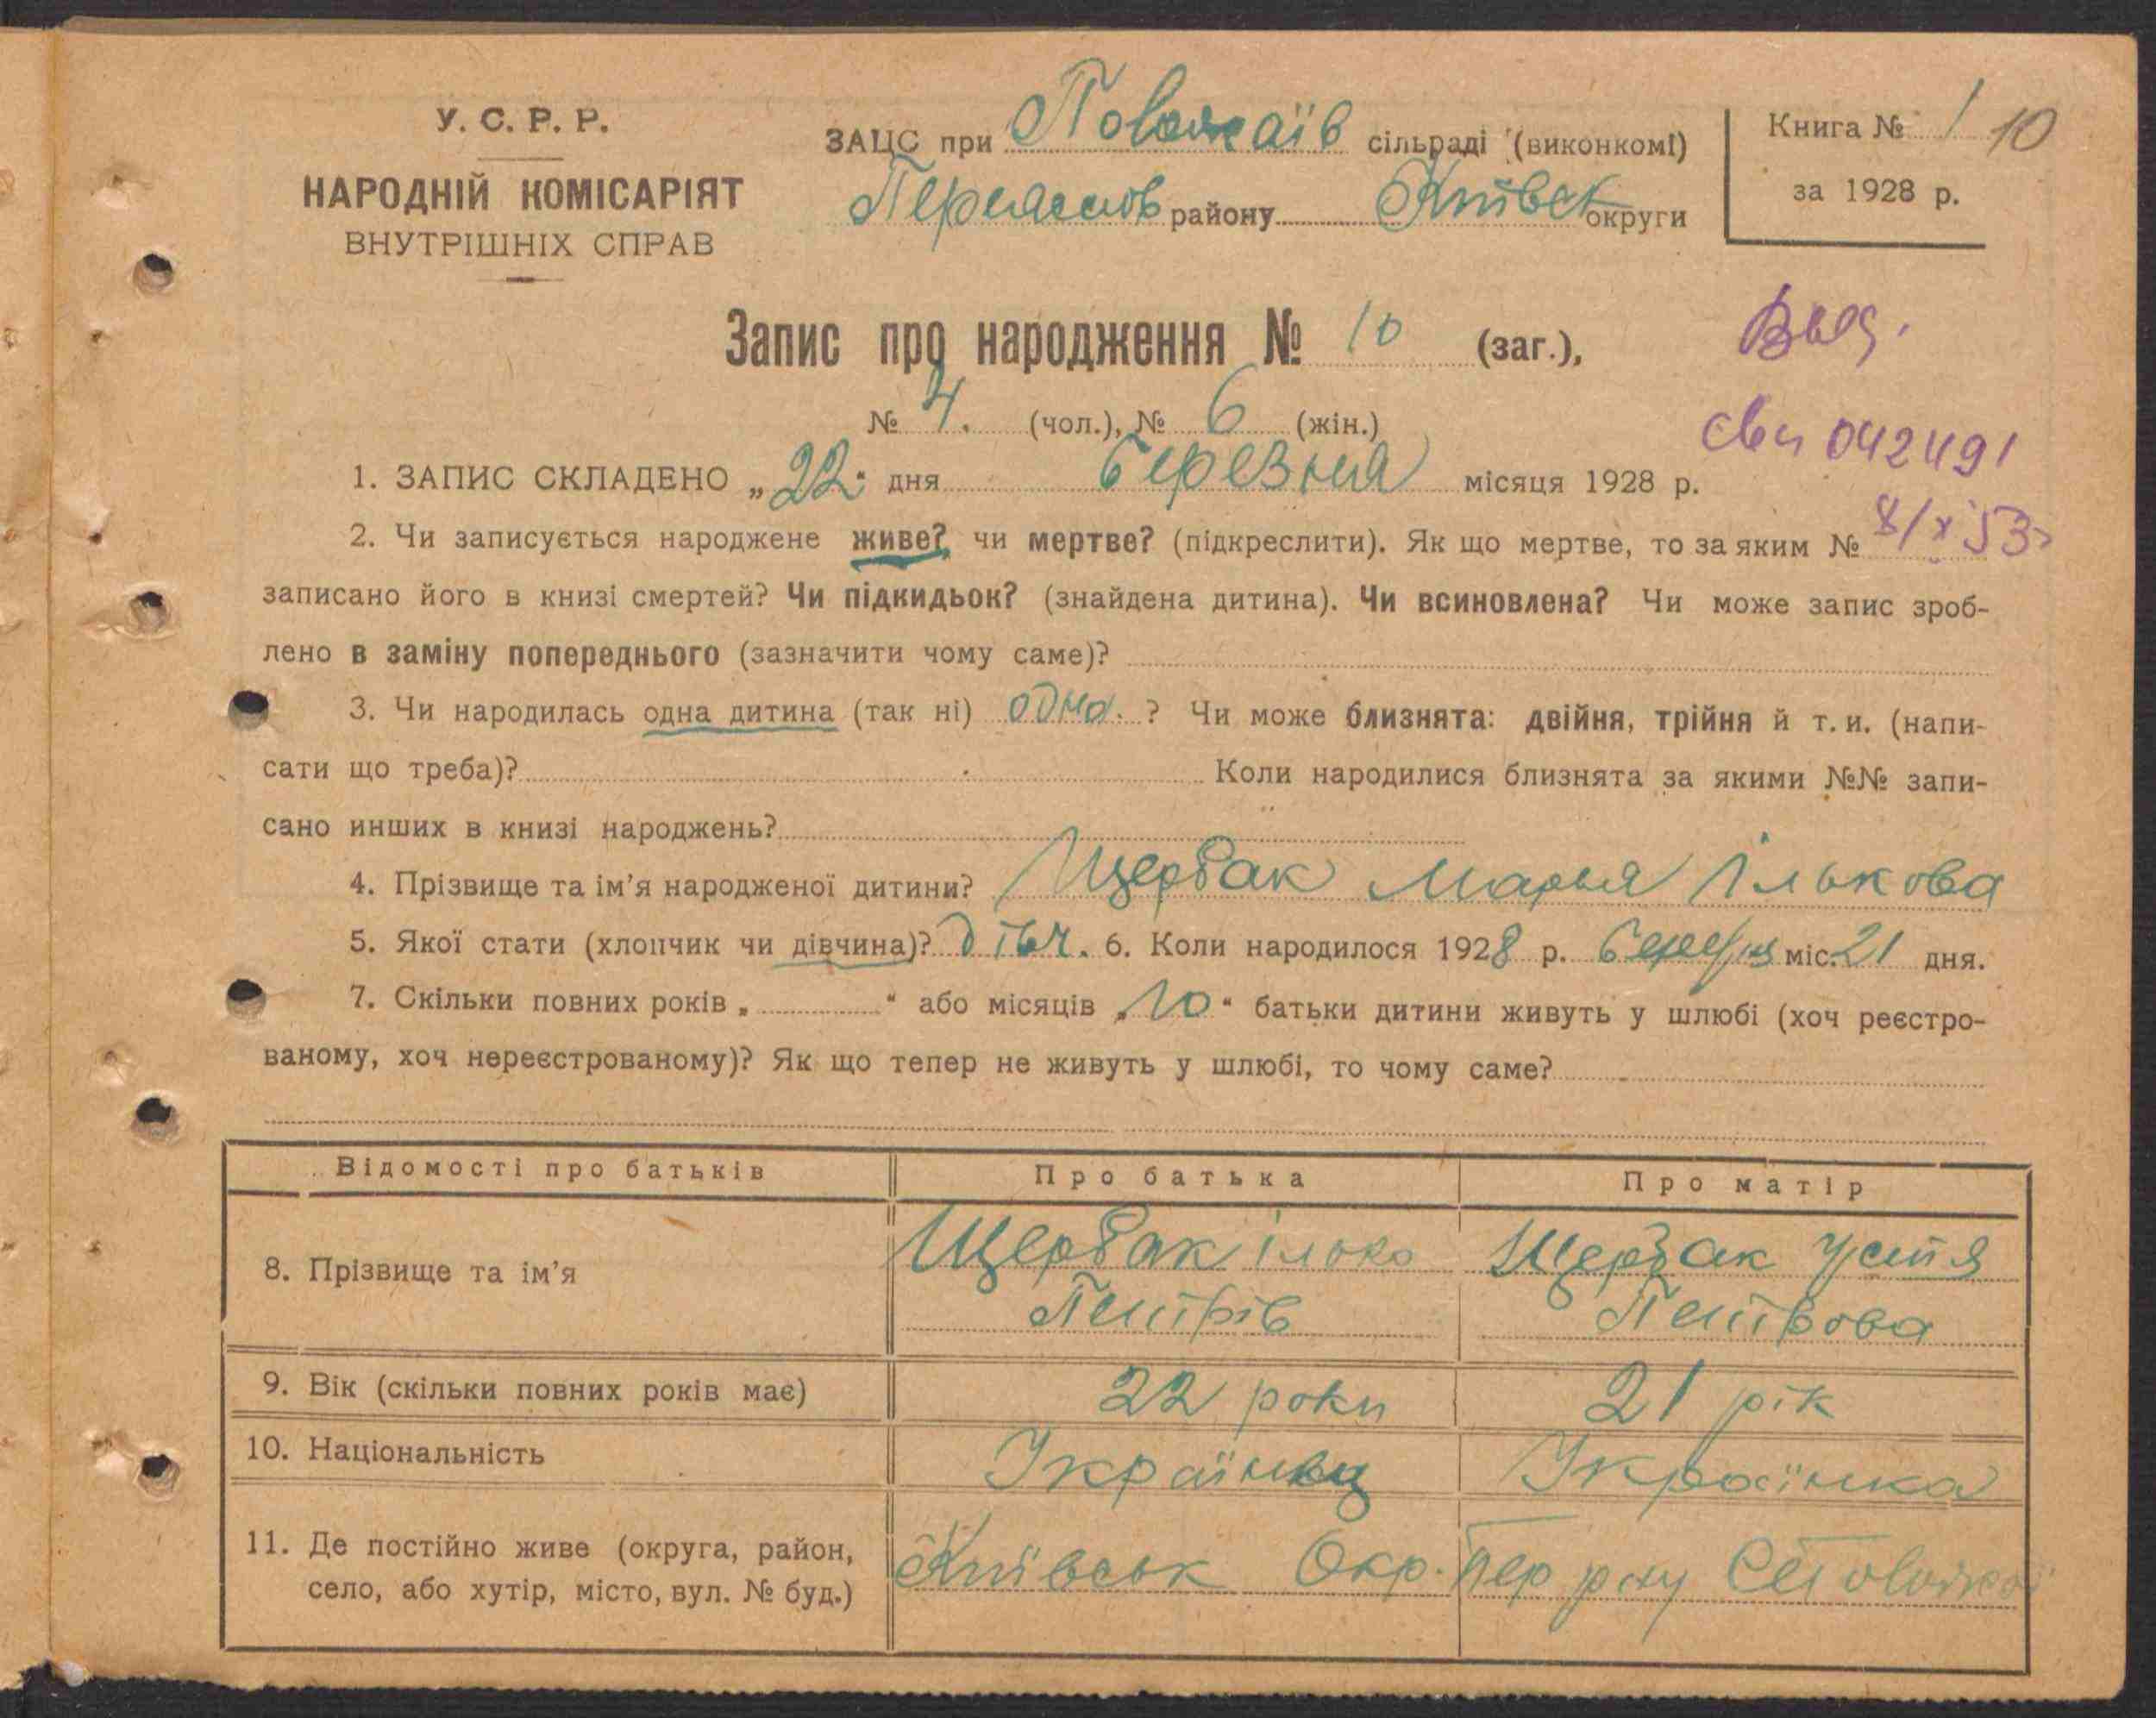 У. С. Р. Р.
НАРОДНІЙ КОМІСАРІЯТ
ВНУТРІШНІХ СПРАВ
ЗАЦС при Поволжаїв сільраді (виконкомі)
Переяслов району Київськ округи
Книга № 1 10
за 1928 р.
Запис про народження № 10 (заг.),
№ 4. (чол.), № 6 (жін.)
Выд.
Свид 042491
8/X 53
1. ЗАПИС СКЛАДЕНО „22“ дня березня місяця 1928 р.
2. Чи записується народжене живе? чи мертве? (підкреслити). Як що мертве, то за яким №
записано його в книзі смертей? Чи підкидьок? (знайдена дитина). Чи всиновлена? Чи може запис зроб-
лено в заміну попереднього (зазначити чому саме)?
3. Чи народилась одна дитина (так ні) одна. ? Чи може близнята: двійня, трійня й т. и. (напи-
сати що треба)? Коли народилися близнята за якими №№ запи-
сано инших в книзі народжень?
4. Прізвище та ім'я народженої дитини? Щербак Марья Ількова
5. Якої стати (хлопчик чи дівчина)? дівч. 6. Коли народилося 1928 р. березня міс. 21 дня.
7. Скільки повних років „ “ або місяців „10“ батьки дитини живуть у шлюбі (хоч реєстро-
ваному, хоч нереєстрованому)? Як що тепер не живуть у шлюбі, то чому саме?
Відомості про батьків Про батька Про матір
8. Прізвище та ім'я Щербак Ілько Щербак Устя
Петрів Петрова
9. Вік (скільки повних років має) 22 роки 21 рік
10. Національність Українец Українка
11. Де постійно живе (округа, район,
село, або хутір, місто, вул. № буд.) Київськ Окр. Пер р-ну